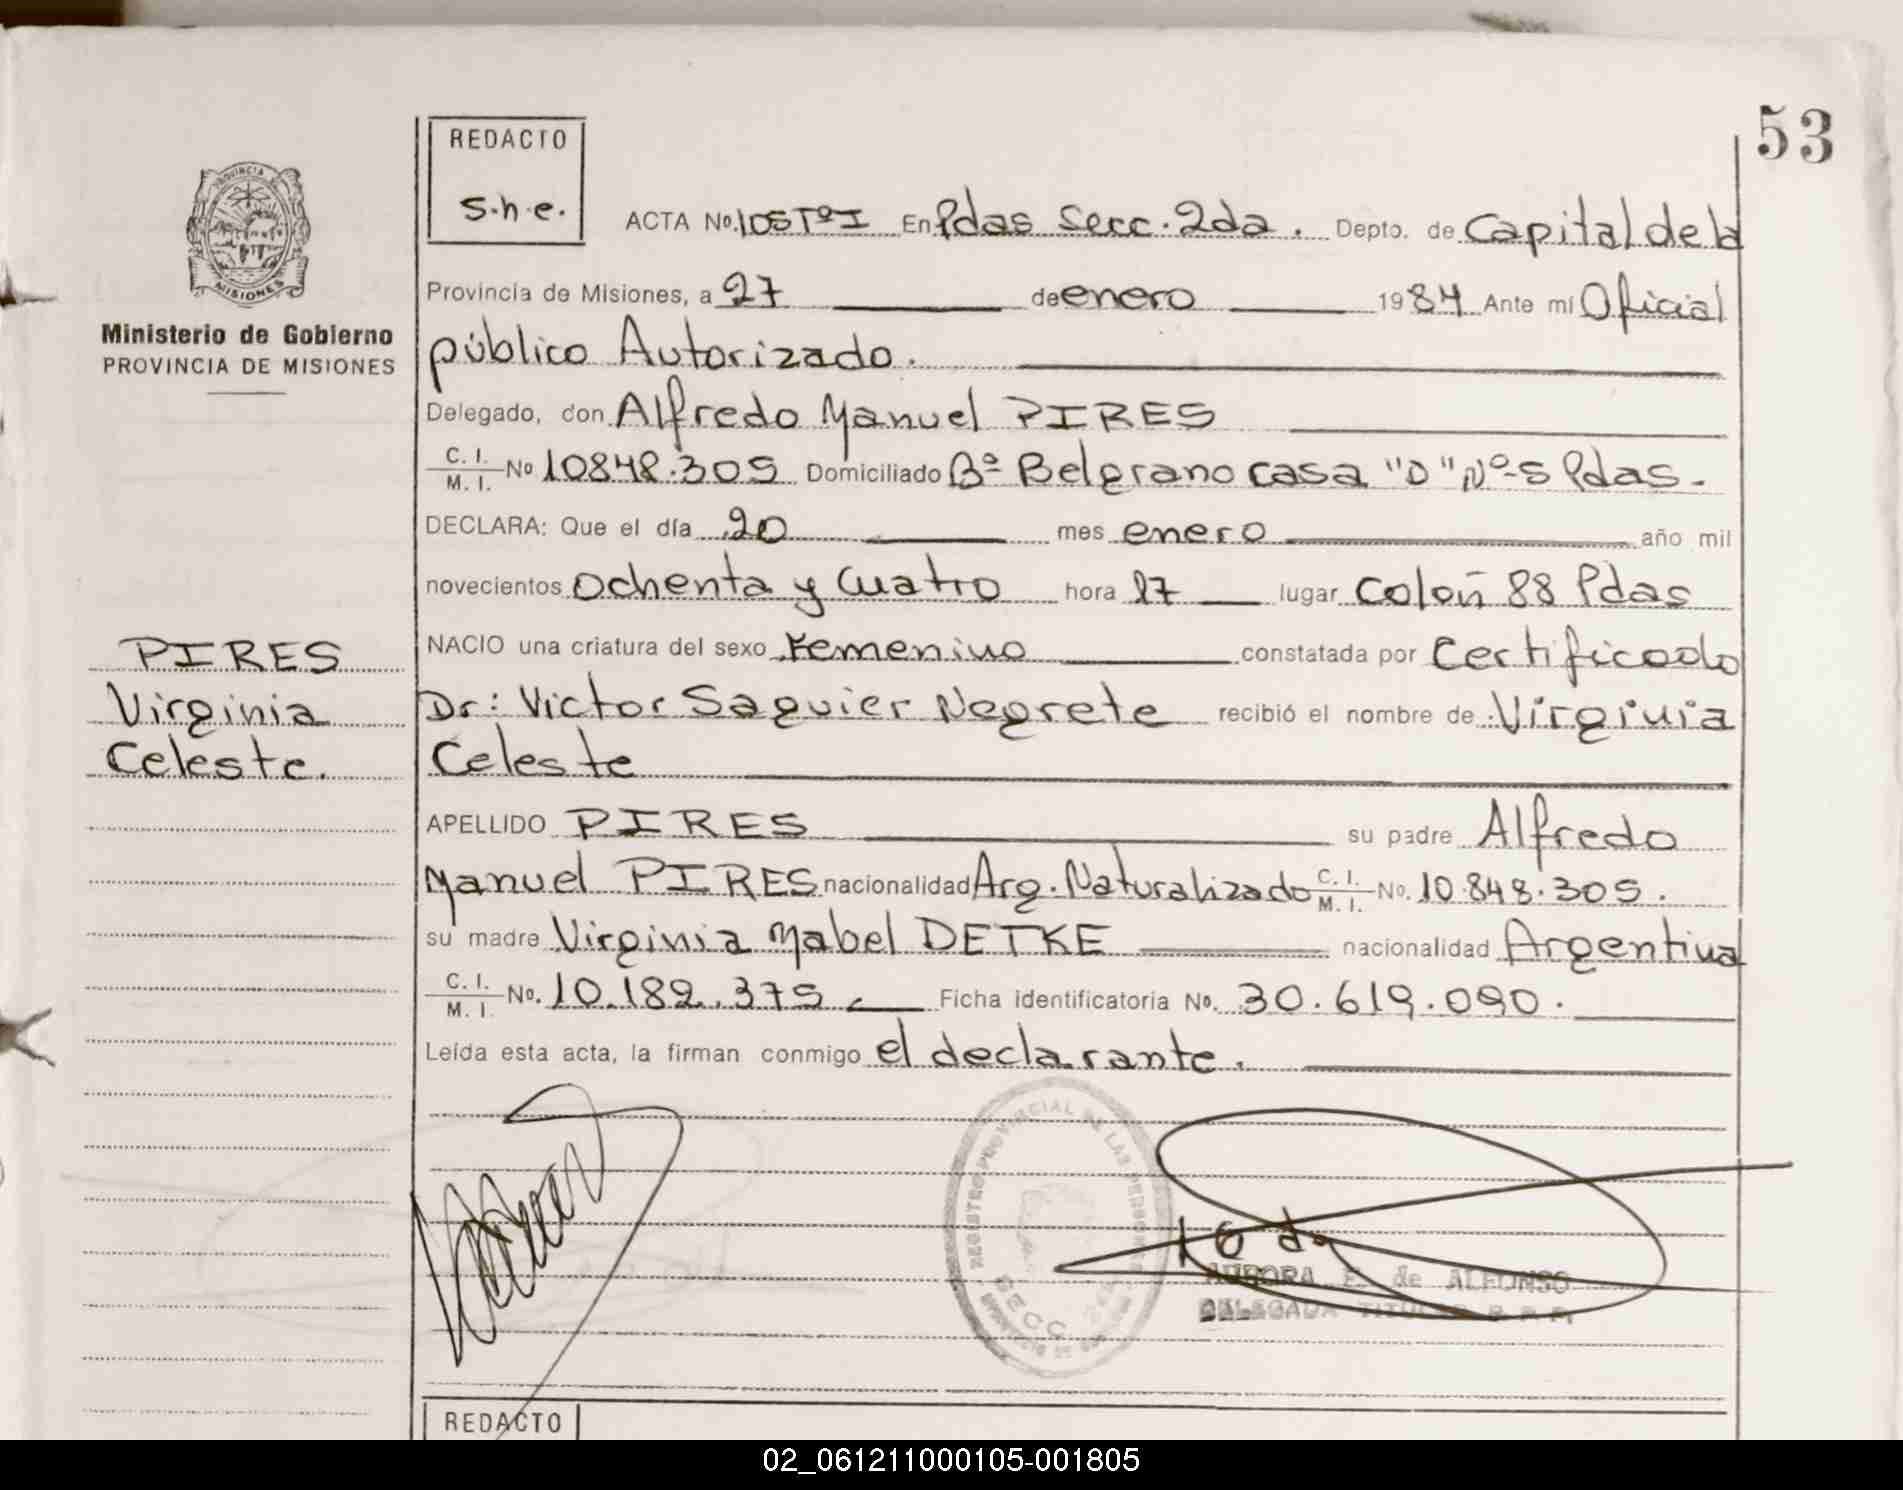 53
REDACTO
s.h.e.
ACTA No. 105 Tº I En Pdas Secc. 2da. Depto. de Capital de la
Provincia de Misiones, a 27 de enero 1984 Ante mí Oficial
público Autorizado.
Delegado, don Alfredo Manuel PIRES
C. I. / M. I. No 10848.305 Domiciliado Bº Belgrano casa "D" Nº 5 Pdas.
DECLARA: Que el día 20 mes enero año mil
novecientos ochenta y cuatro hora 17 lugar Colón 88 Pdas
NACIO una criatura del sexo Femenino constatada por Certificado
Dr: Victor Saguier Negrete recibió el nombre de Virginia
Celeste
APELLIDO PIRES su padre Alfredo
Manuel PIRES nacionalidad Arg. Naturalizado C. I. / M. I. No. 10.848.305.
su madre Virginia Mabel DETKE nacionalidad Argentina
C. I. / M. I. No. 10.182.375 Ficha identificatoria No. 30.619.090.
Leída esta acta, la firman conmigo el declarante.
PROVINCIA DE
MISIONES
Ministerio de Gobierno
PROVINCIA DE MISIONES
PIRES
Virginia
Celeste.
REGISTRO PROVINCIAL DE LAS PERSONAS
SECC. 2da
AURORA E. de ALFONSO
DELEGADA TITULAR R. P. P.
REDACTO
02_061211000105-001805